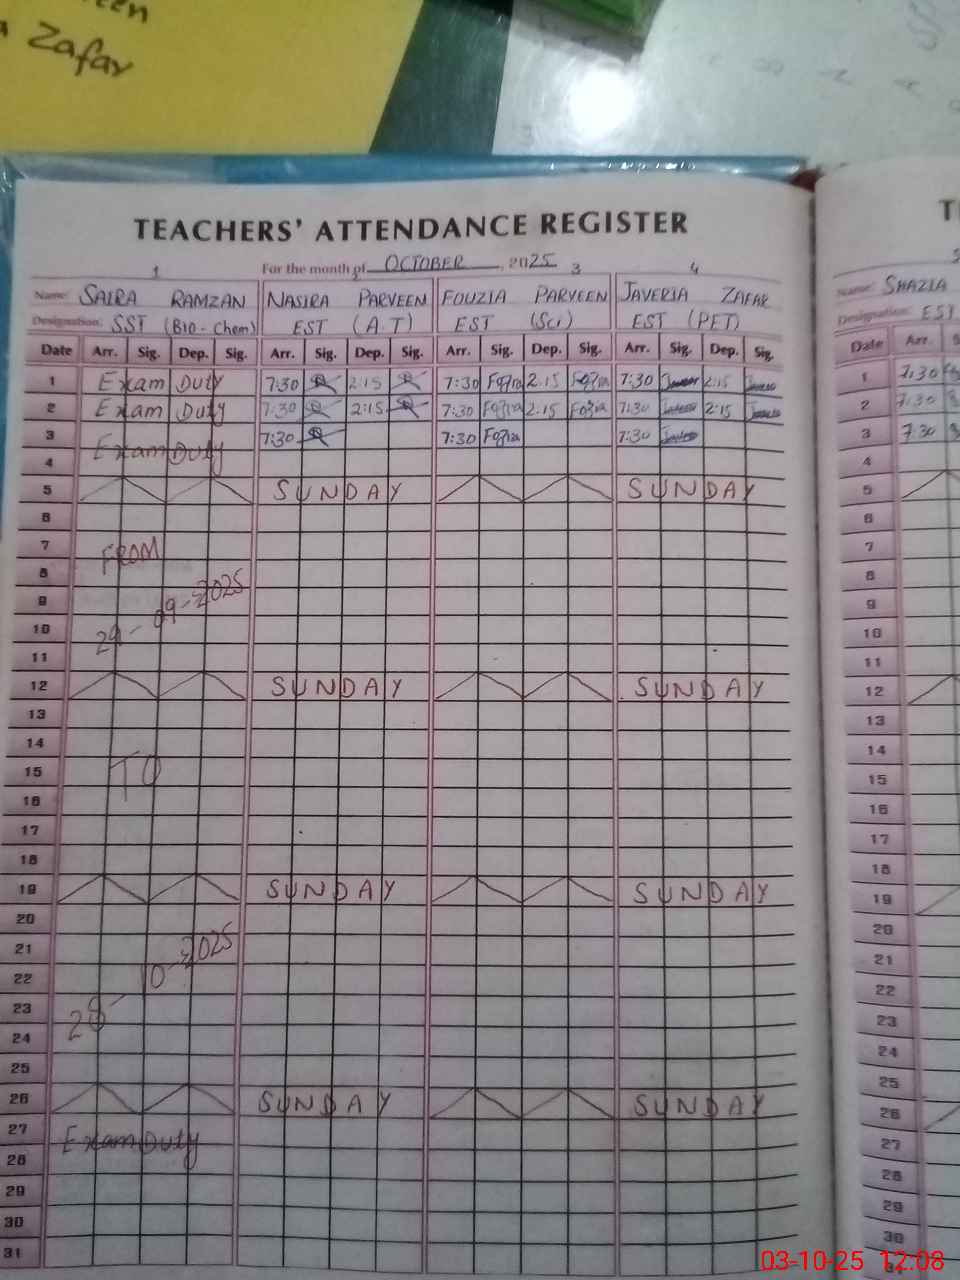 een
a Zafar
TEACHERS' ATTENDANCE REGISTER
For the month of OCTOBER, 2025
1 2 3 4
Name: SAIRA RAMZAN NASIRA PARVEEN FOUZIA PARVEEN JAVERIA ZAFAR Name: SHAZIA
Designation: SST (Bio-Chem) EST (A.T) EST (Sci) EST (PET) Designation: EST
Date Arr. Sig. Dep. Sig. Arr. Sig. Dep. Sig. Arr. Sig. Dep. Sig. Arr. Sig. Dep. Sig. Date Arr.
1 Exam Duty 7:30 2:15 7:30 2:15 7:30 2:15 1 7:30
2 Exam Duty 7:30 2:15 7:30 2:15 7:30 2:15 2 7:30
3 Exam Duty 7:30 7:30 7:30 3 7:30
4 4
5 SUNDAY SUNDAY 5
6 6
7 FROM 7
8 8
9 29-09-2025 9
10 10
11 11
12 SUNDAY SUNDAY 12
13 13
14 14
15 TO 15
16 16
17 17
18 18
19 SUNDAY SUNDAY 19
20 20
21 21
22 28-10-2025 22
23 23
24 24
25 25
26 SUNDAY SUNDAY 26
27 Exam Duty 27
28 28
29 29
30 30
31 31
03-10-25 12:08